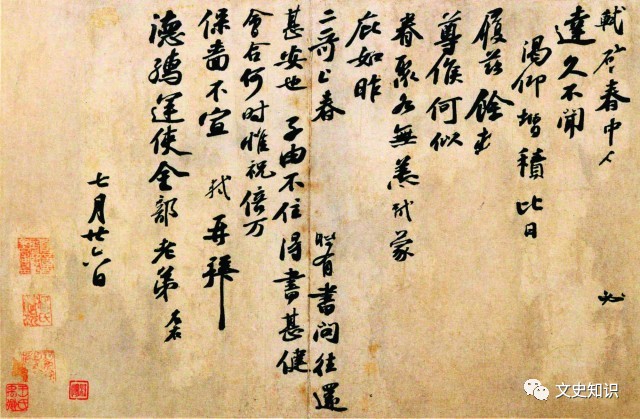 軾啓春中人
必
達久不聞
渴仰增積比日
履茲餘
尊候何似
眷聚各無恙軾蒙
庇如昨
二哥上春 時有書問往還
甚安也 子由不住得書甚健
會合何時惟祝倍万
保嗇不宣 軾再拜
德孺運使金部老弟
七月廿六日
文史知识